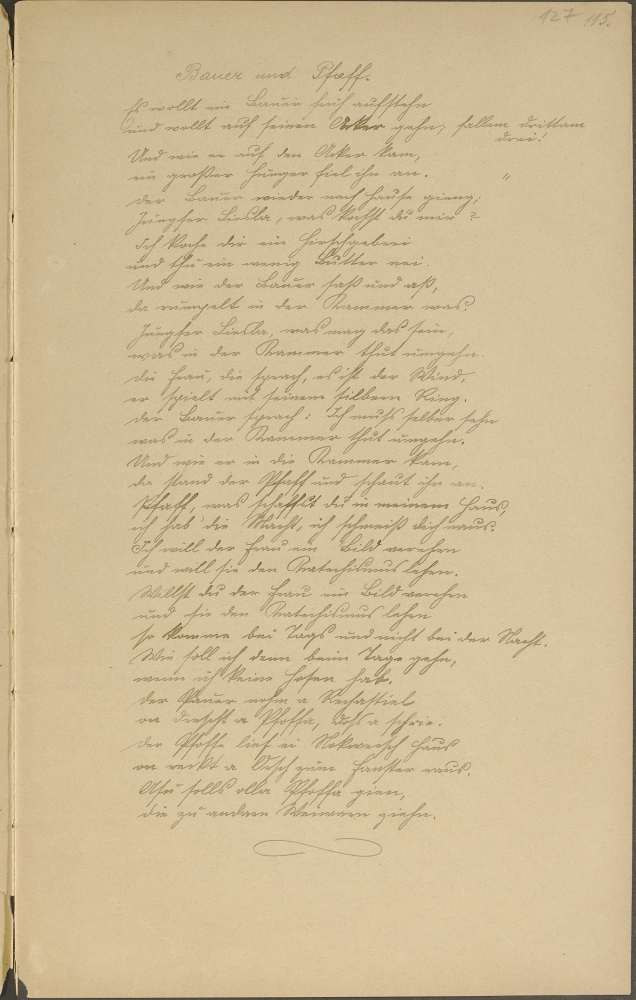 127 115.
Bauer und Pfaff.
Es wollt ein Bauer früh aufstehn
und wollt auf seinen Acker gehn, fallem drittam
drei!
Und wie er auf den Acker kam,
ein großer Hunger fiel ihn an. "
der Bauer wieder nach Hause gieng;
Jungfer Liesla, was kochst du mir?
Ich koche dir ein Hirschgebrei
und thu ein wenig Butter nei.
Und wie der Bauer saß und aß,
da rumpelt in der Kammer was.
Jungfer Liesla, was mag das sein,
was in der Kammer thut umgehn.
die Frau, die sprach, es ist der Wind,
er spielt mit seinem silbern Ring.
der Bauer sprach: Ich muss selber sehn
was in der Kammer thut umgehn.
Und wie er in die Kammer kam,
da stand der Pfaff und schaut ihn an.
Pfaff, was schaffst du in meinem Haus,
ich hab' die Macht, ich schmeiß dich naus.
Ich will der Frau ein Bild verehrn
und will sie den Katechismus lehrn.
Willst du der Frau ein Bild verehrn
und sie den Katechismus lehrn
so komme bei Tags und nicht bei der Nacht.
Wie soll ich denn beim Tage gehn,
wenn ich keine Hosen hab.
der Pauer nohm a
on drescht a Pfoffa, doß a schrie.
der Pfoffe lief ei Haus
on reckt a Orsch zum Fanster naus.
Asu solls olla Pfoffa gien,
die zu andern Weiwern ziehn.